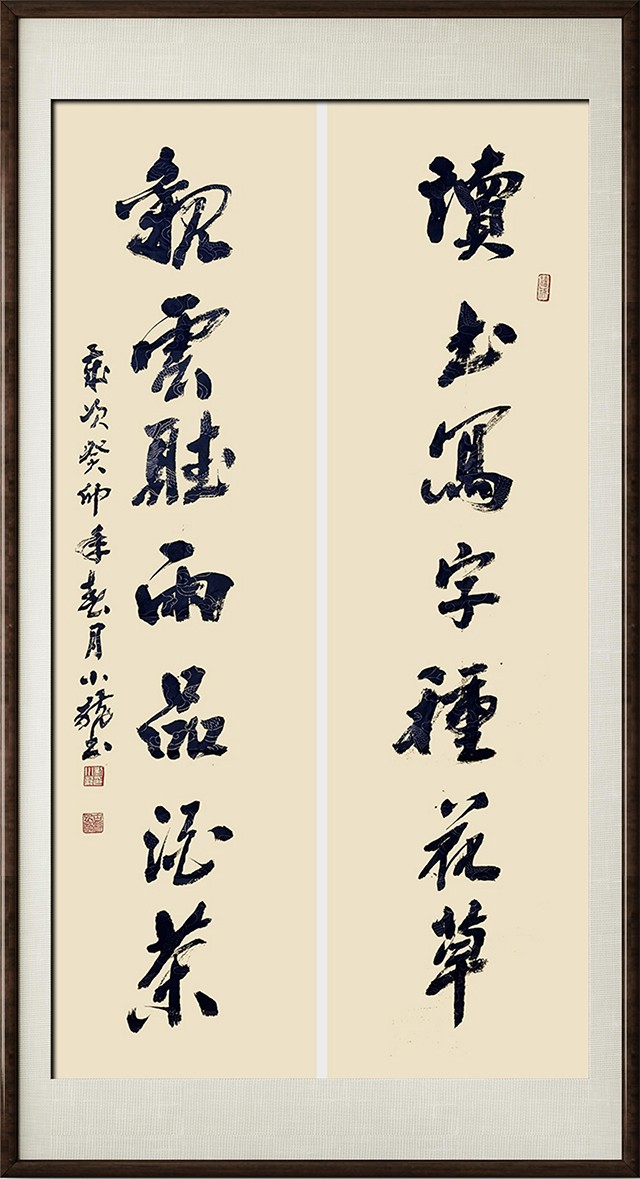 讀書寫字種花草
觀雲聽雨品酒茶
歲次癸卯年春月小書